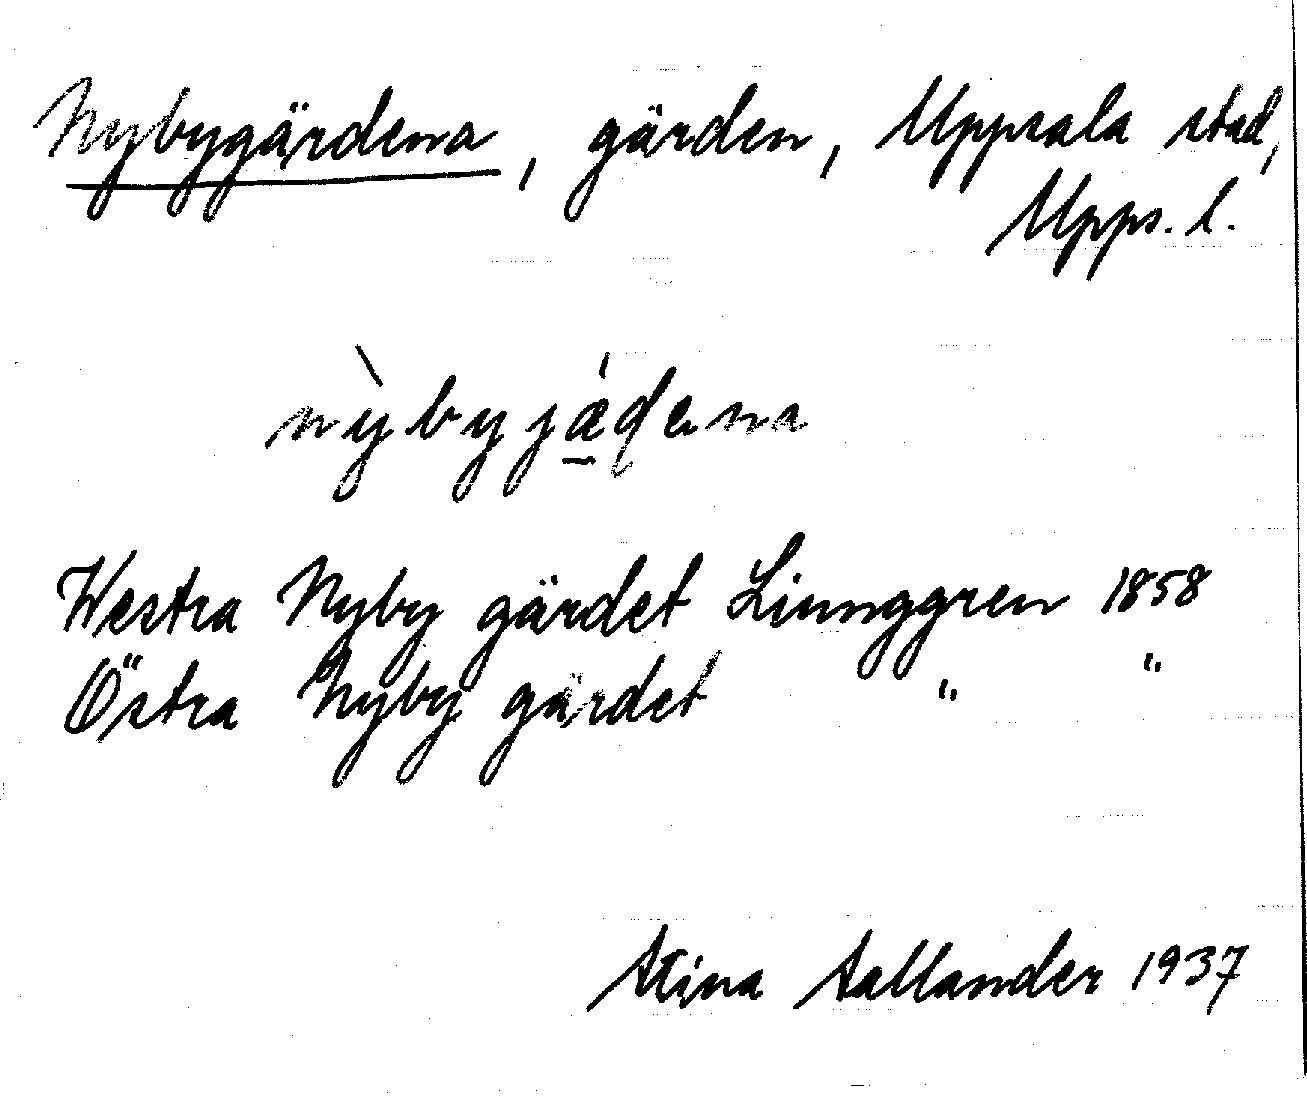 Nybygärdena, gärden, Uppsala stad,
Upps. l.
nỳbyjǽɖena
Westra Nyby gärdet Linnggren 1858
Östra Nyby gärdet " "
Stina Sallander 1937